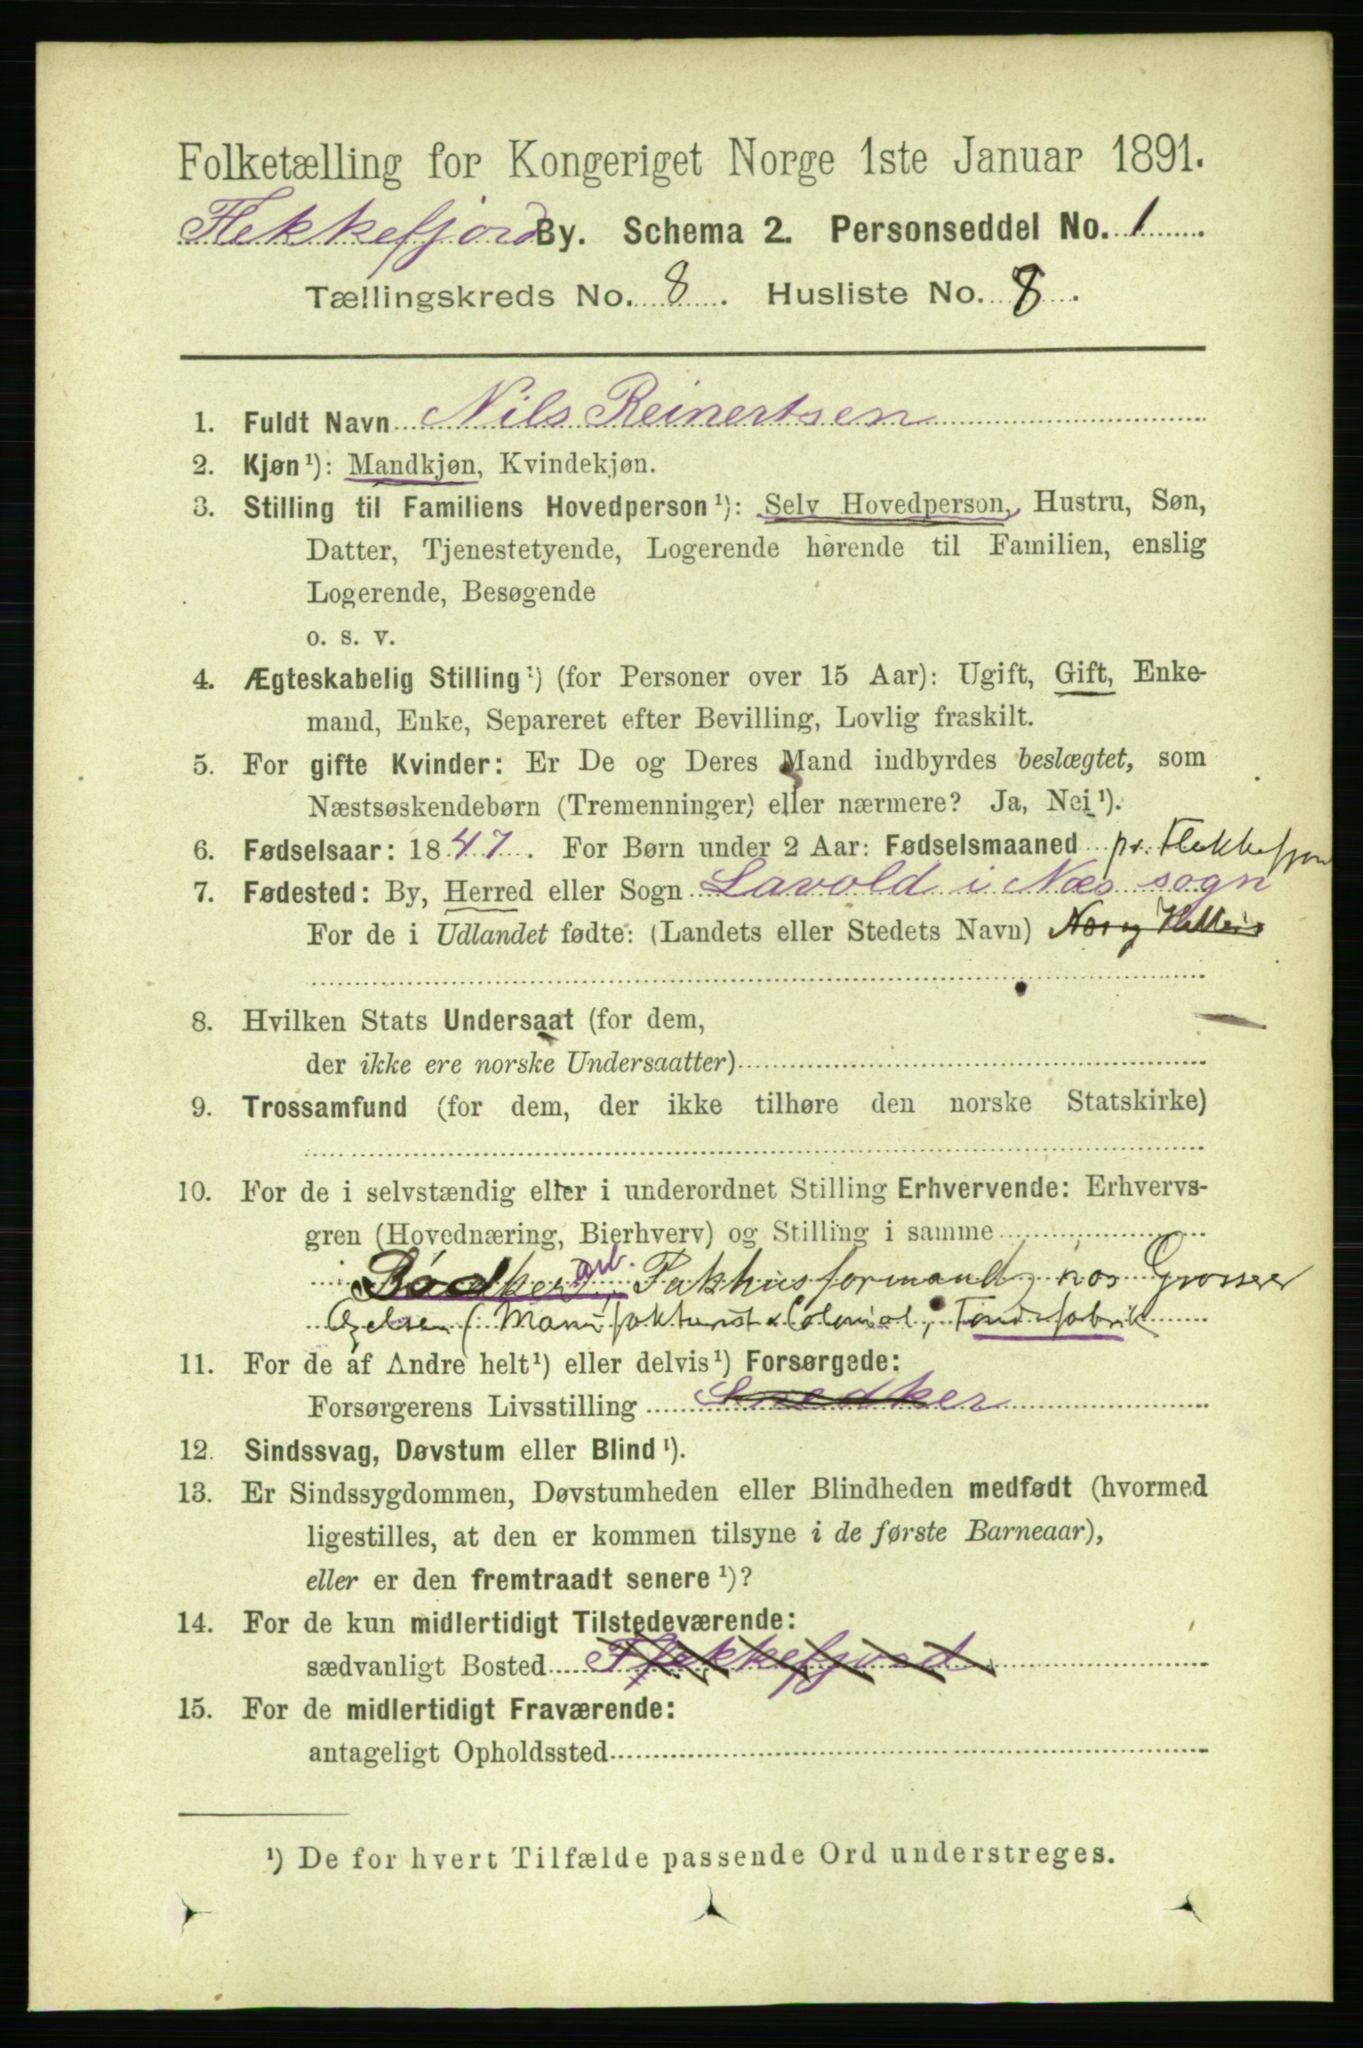 Folketælling for Kongeriget Norge 1ste Januar 1891.
Flekkefjord By. Schema 2. Personseddel No. 1
Tællingskreds No. 8. Husliste No. 8.
1. Fuldt Navn Nils Reinertsen
2. Kjøn¹): Mandkjøn, Kvindekjøn.
3. Stilling til Familiens Hovedperson¹): Selv Hovedperson, Hustru, Søn,
Datter, Tjenestetyende, Logerende hørende til Familien, enslig
Logerende, Besøgende
o. s. v.
4. Ægteskabelig Stilling¹) (for Personer over 15 Aar): Ugift, Gift, Enke-
mand, Enke, Separeret efter Bevilling, Lovlig fraskilt.
5. For gifte Kvinder: Er De og Deres Mand indbyrdes beslægtet, som
Næstsøskendebørn (Tremenninger) eller nærmere? Ja, Nei¹).
6. Fødselsaar: 1847. For Børn under 2 Aar: Fødselsmaaned pr. Flekkefjord
7. Fødested: By, Herred eller Sogn Lavold i Næs sogn
For de i Udlandet fødte: (Landets eller Stedets Navn)
8. Hvilken Stats Undersaat (for dem,
der ikke ere norske Undersaatter)
9. Trossamfund (for dem, der ikke tilhøre den norske Statskirke)
10. For de i selvstændig eller i underordnet Stilling Erhvervende: Erhvervs-
gren (Hovednæring, Bierhverv) og Stilling i samme
Bødker arb., Pakhusformand hos Grosserer
(Manufakturist & Colonial, Tøndefabrik
11. For de af Andre helt¹) eller delvis¹) Forsørgede:
Forsørgerens Livsstilling Snedker
12. Sindssvag, Døvstum eller Blind¹).
13. Er Sindssygdommen, Døvstumheden eller Blindheden medfødt (hvormed
ligestilles, at den er kommen tilsyne i de første Barneaar),
eller er den fremtraadt senere¹)?
14. For de kun midlertidigt Tilstedeværende:
sædvanligt Bosted Flekkefjord
15. For de midlertidigt Fraværende:
antageligt Opholdssted
¹) De for hvert Tilfælde passende Ord understreges.